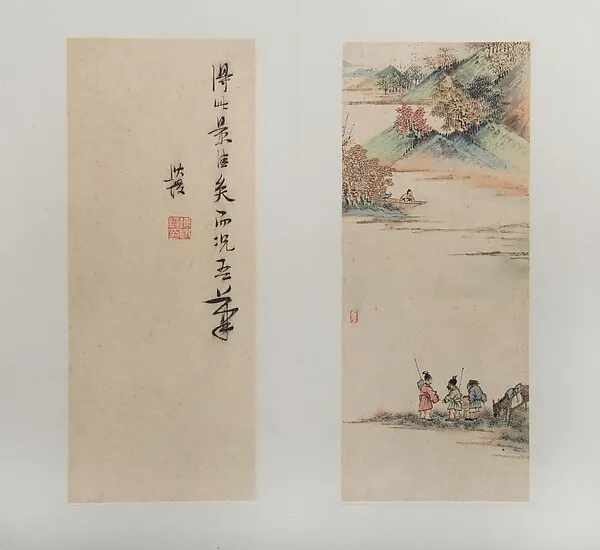 得此景佳矣而况吾筆
洪綬